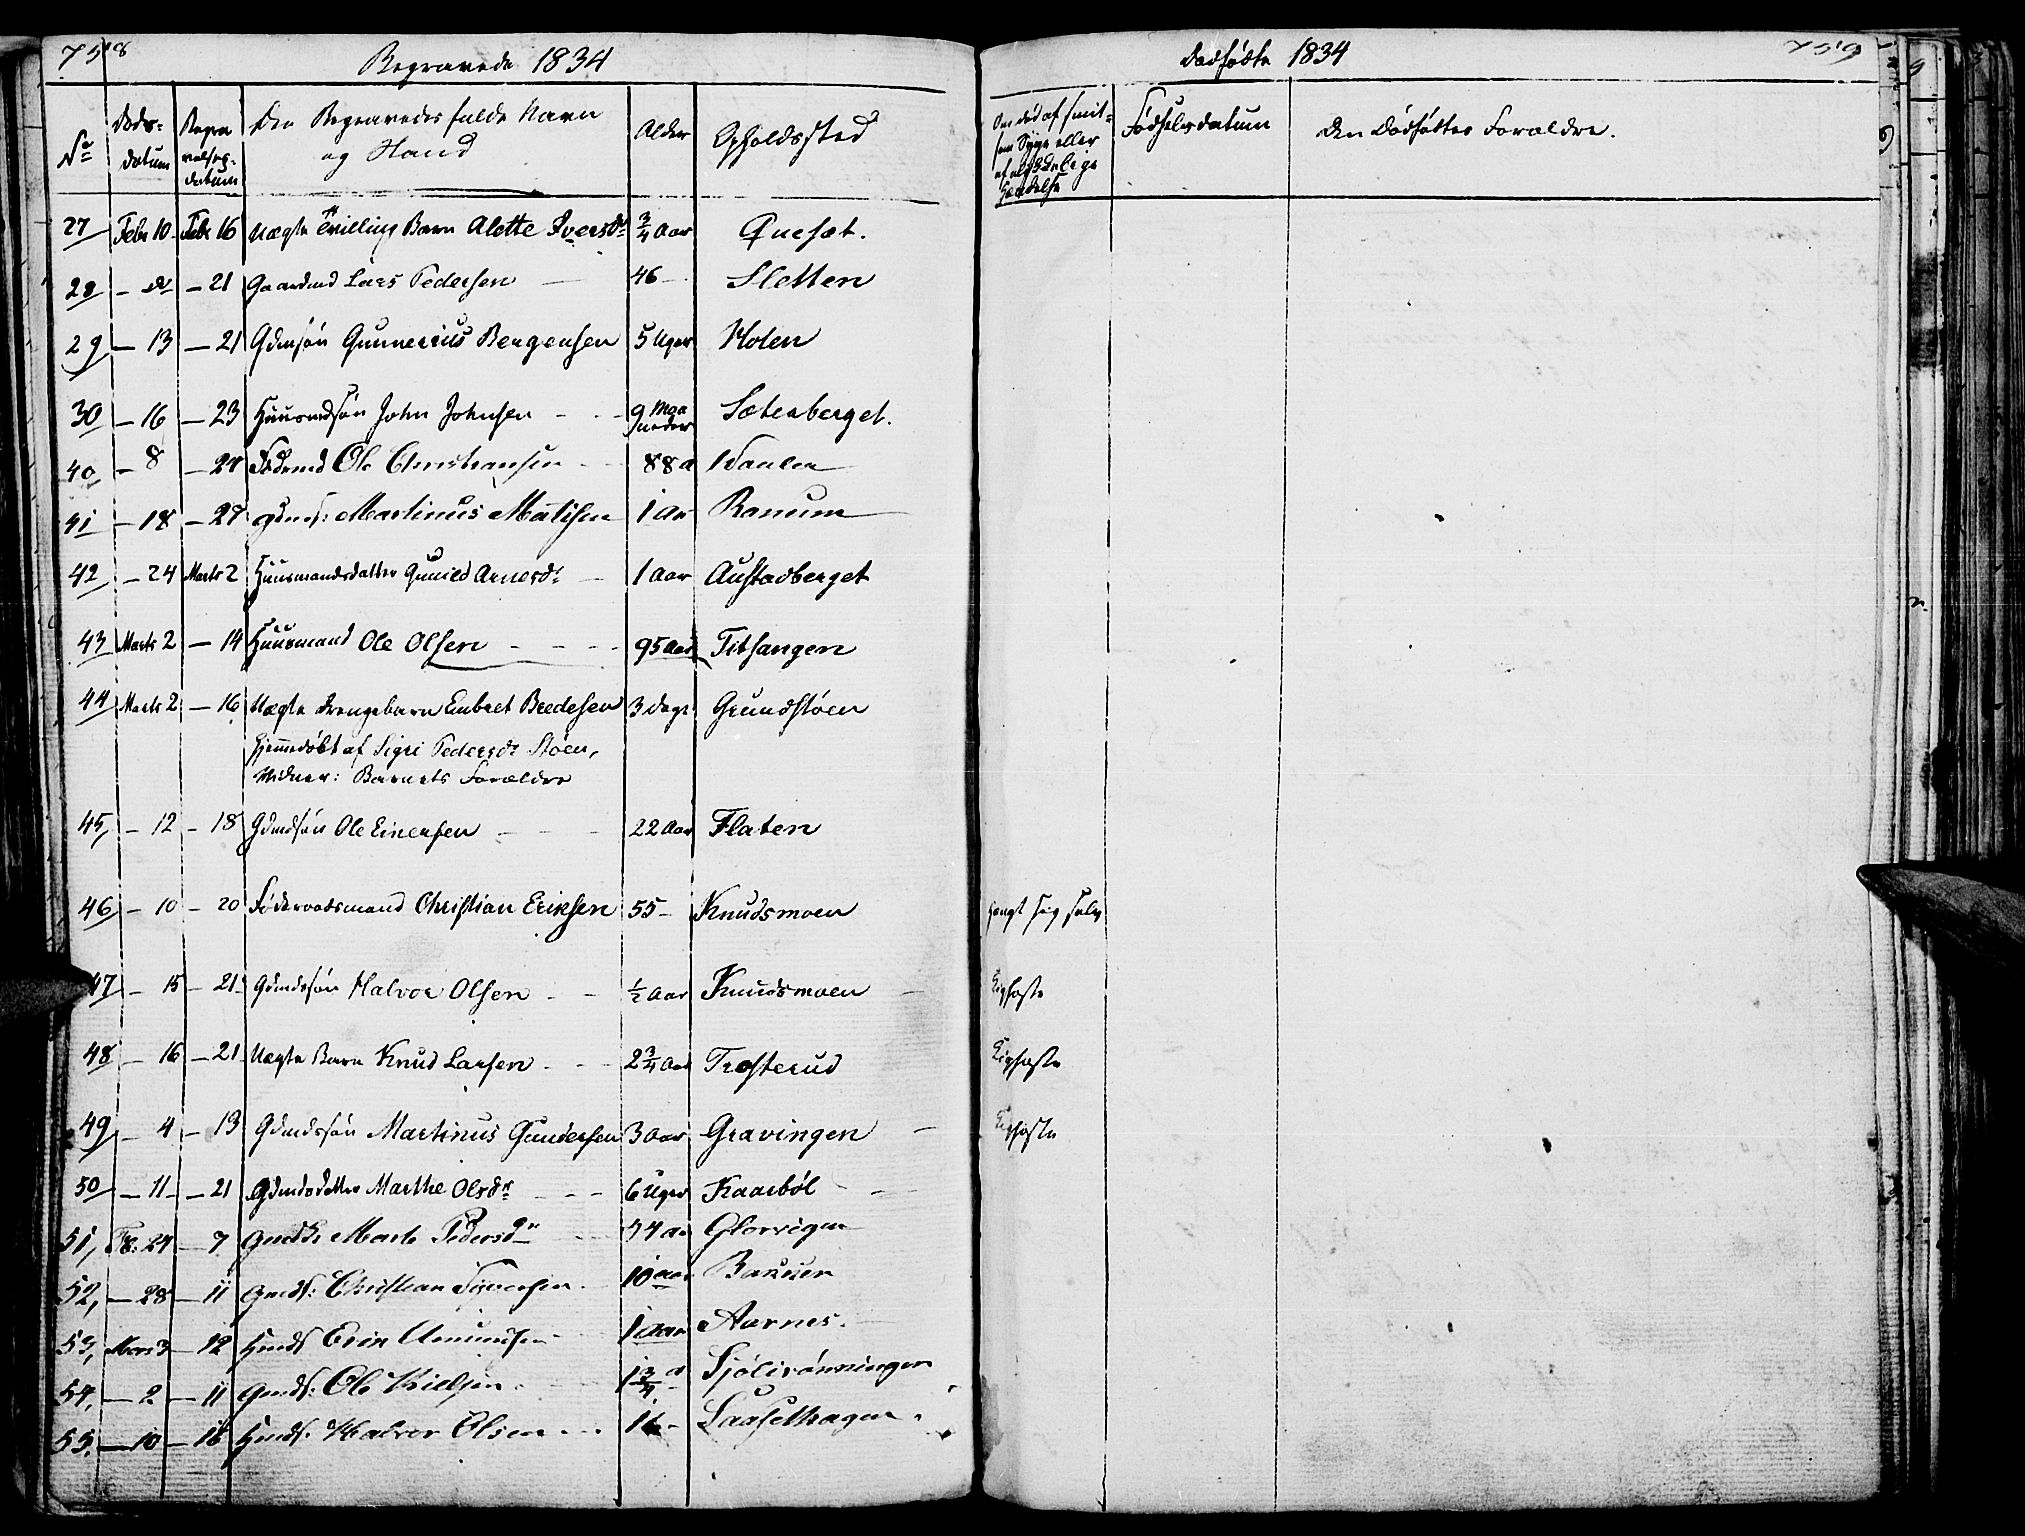 758
Begravede 1834
No
Døds-
datum
Begra
velses-
datum
Den Begravedes fulde Navn
og Stand
Alder
Opholdssted
27 Febr 10 Febr 16 Uægte Tvilling Barn Alette Iversdr 3/4 Aar Quesæt.
28 - do - 21 Gaardmd Lars Pedersen 46 - Sletten
29 - 13 - 21 Gdmsøn Gunnerius Bergersen 5 Uger Holen
30 - 16 - 23 Huusmdsøn John Johnsen - - 9 Maa
neder Sæterberget.
40 - 8 - 27 Fødermd Ole Christiansen 88 a
41 - 18 - 27 gdms: Martinus Matisen 1 Aar Ranum
42 - 24 Marts 2 Huusmandsdatter Gunild Arnesdr 1 Aar Austadberget
43 Marts 2 - 14 Huusmand Ole Olsen - - - 95 Aar Titsangen
44 Marts 2 - 16 Uægte Drengebarn Embret Bredesen 3 dage Grundstøen
Hjemmedøbt af Sigri Pedersdr Støen,
Vidner: Barnets Forældre
45, - 12 - 18 Gdmdsøn Ole Einersen - - - 22 Aar Flaten
46 - 10 - 20 Føderaadsmand Christian Eriksen 55 - Knudsmoen
47 - 15 - 21 Gdmdssøn Halvor Olsen - - 1/2 Aar Knudsmoen
48 - 16 - 21 Uægte Barn Knud Larsen - - 2 3/4 Aar Trosterud
49 - 4 - 13 Gdmdssøn Martinus Gundersen 3 Aar Gravingen
50 - 11 - 21 Gdmdsdatter Marthe Olsdr - - 6 Uger Kaarbøl
51, Fb. 24 - 7 Marte Pedersdr 54 aa Glorvigen
52, - 28 - 11 Gmds: Christian Iversen 10 aar Bakken
53, Mars 3 - 12 Hmds Erik Amundsen 1 Aar Aarnes.
54, - 2 - 11 Gmds: Ole Nielsen 1 3/4 a Sjølirønningen
55. - 10 - 16 Hmds. Halvor Olsen - - Laasethagen.
Dødfødte 1834
759
Om død af smit-
som Syge eller
af ualmdelige
Hændelse
Fødselsdatum
Den Dødføttes Forældre.
hengt sig selv
Kighoste
Kighoste
Kighoste